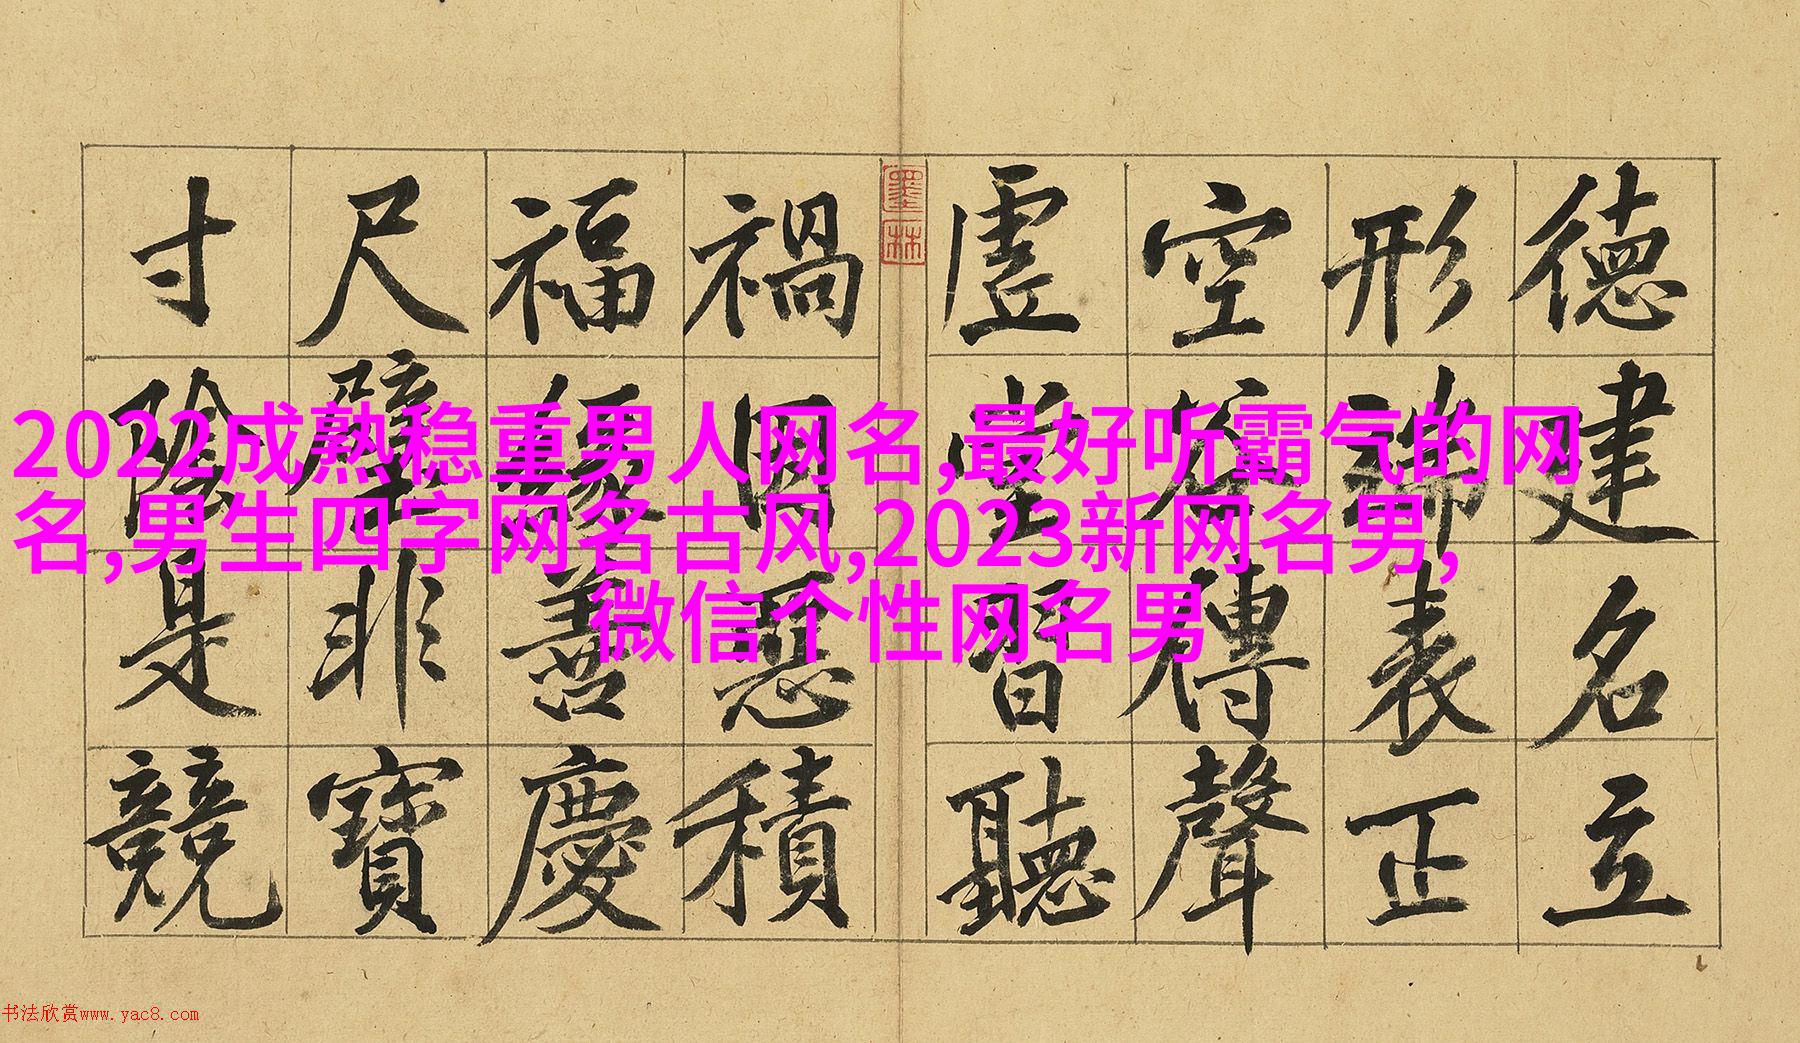 德建名立
形端表正
空谷傳聲
虛堂習聽
墨林
禍因惡積
福緣善慶
尺璧非寶
寸陰是競
2022成熟稳重男人网名,最好听霸气的网
名,男生四字网名古风,2023新网名男,
微信个性网名男
书法欣赏www.yac8.com